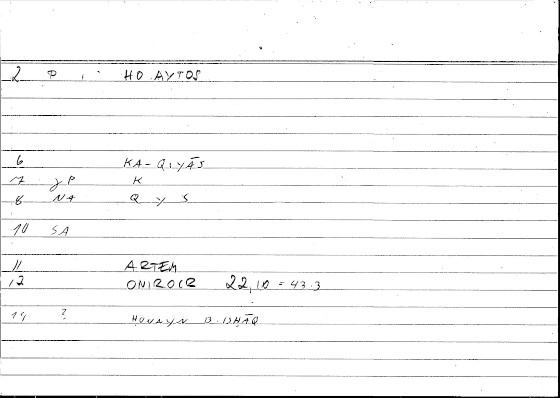 2 P , HO AYTOS
6 KA-QIYĀS
7 gP K
8 NA Q y S
10 SA
11 ARTEM
12 ONIROCR 22,10 = 43.3
14 ? HUNAYN B. ISHĀQ